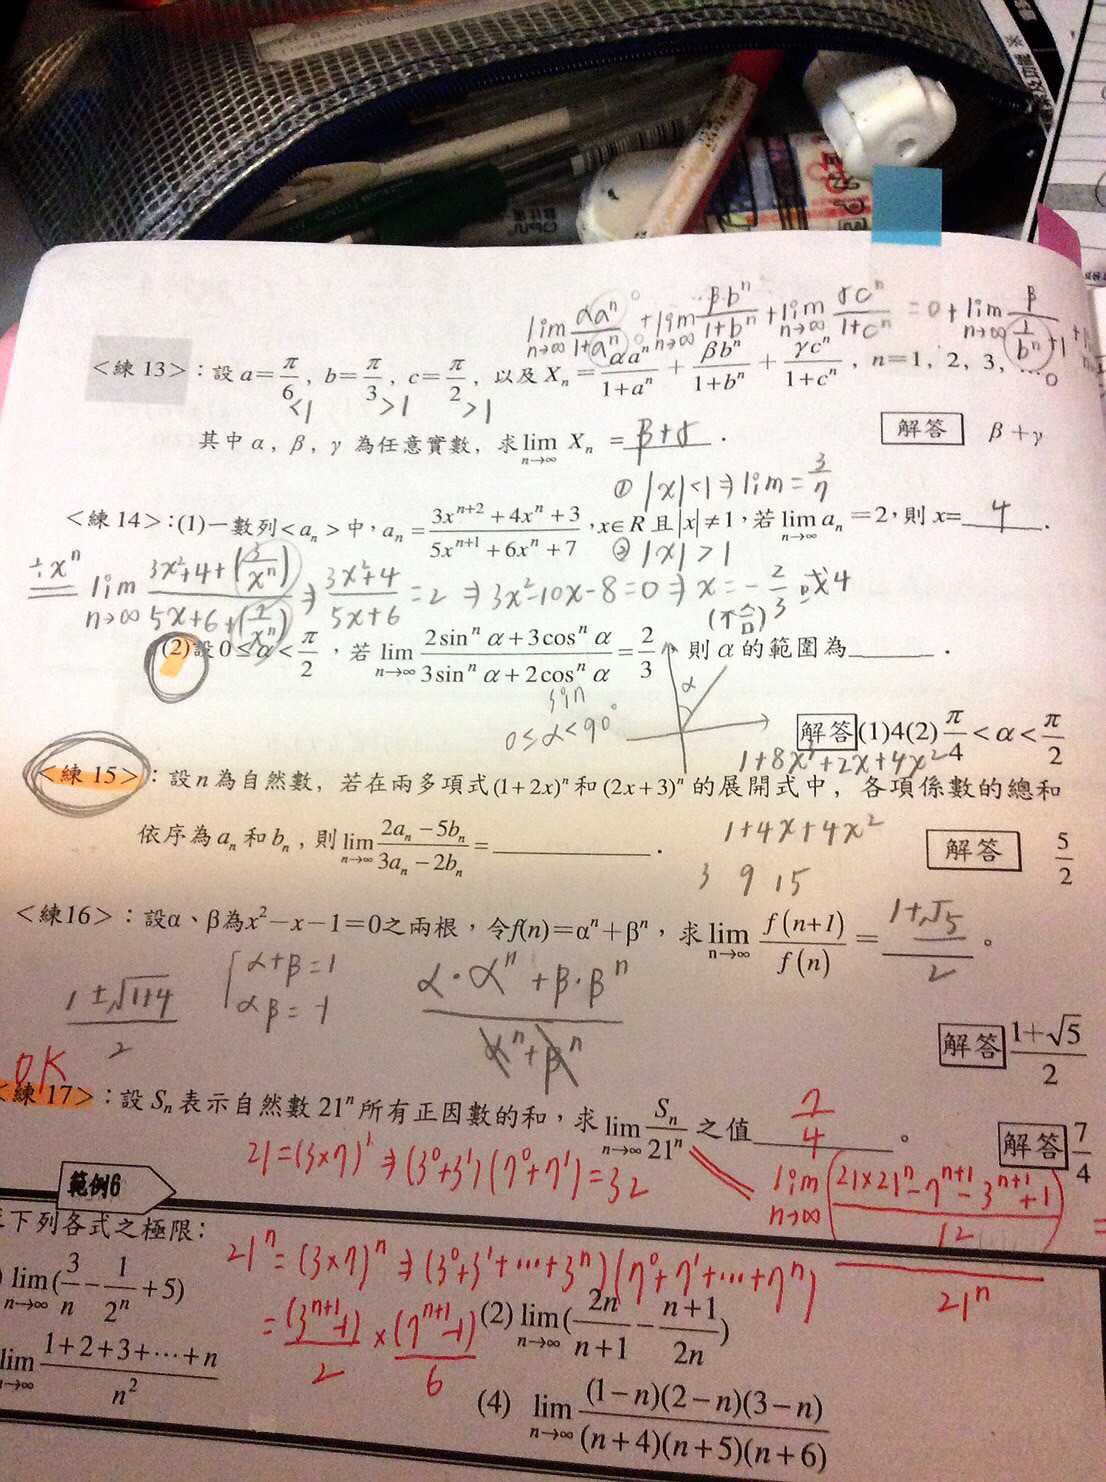 lim n→∞ αaⁿ/(1+aⁿ) + lim n→∞ β·bⁿ/(1+bⁿ) + lim n→∞ γcⁿ/(1+cⁿ) = 0 + lim n→∞ β/(1/bⁿ+1)
<練 13>：設 a=π/6, b=π/3, c=π/2, 以及 Xₙ=αaⁿ/(1+aⁿ)+βbⁿ/(1+bⁿ)+γcⁿ/(1+cⁿ), n=1, 2, 3, …。
<1 >1 >1
其中 α, β, γ 為任意實數, 求 lim n→∞ Xₙ = β+γ .
解答 β+γ
① |x|<1⇒lim=3/7
<練 14>：(1)一數列<aₙ>中, aₙ=(3xⁿ⁺²+4xⁿ+3)/(5xⁿ⁺¹+6xⁿ+7), x∈R 且|x|≠1, 若 lim n→∞ aₙ=2, 則 x= 4 .
② |x|>1
÷xⁿ lim n→∞ (3x²+4+(3/xⁿ))/(5x+6+(7/xⁿ)) ⇒ (3x²+4)/(5x+6)=2 ⇒ 3x²-10x-8=0 ⇒ x=-2/3 或4
(不合)
(2)設 0≤α<π/2, 若 lim n→∞ (2sinⁿ α+3cosⁿ α)/(3sinⁿ α+2cosⁿ α)=2/3, 則 α 的範圍為______.
α
sin
0≤α<90°
解答 (1)4(2) π/4<α<π/2
1+8x³+2x+4x²
<練 15>：設 n 為自然數, 若在兩多項式(1+2x)ⁿ 和 (2x+3)ⁿ 的展開式中, 各項係數的總和
依序為 aₙ 和 bₙ, 則 lim n→∞ (2aₙ-5bₙ)/(3aₙ-2bₙ)=____________.
1+4x+4x²
解答 5/2
3 9 15
<練16>：設α、β為x²-x-1=0之兩根, 令f(n)=αⁿ+βⁿ, 求 lim n→∞ f(n+1)/f(n) = (1+√5)/2 。
(1±√(1+4))/2
α+β=1
αβ=-1
(α·αⁿ+β·βⁿ)/(αⁿ+βⁿ)
解答 (1+√5)/2
OK
<練 17>：設 Sₙ 表示自然數 21ⁿ 所有正因數的和, 求 lim n→∞ Sₙ/21ⁿ 之值 7/4 。
解答 7/4
21=(3×7)¹⇒(3⁰+3¹)(7⁰+7¹)=32
lim n→∞ ((21×21ⁿ-7ⁿ⁺¹-3ⁿ⁺¹+1)/12)/21ⁿ =
範例6
下列各式之極限：
21ⁿ=(3×7)ⁿ⇒(3⁰+3¹+…+3ⁿ)(7⁰+7¹+…+7ⁿ)
=(3ⁿ⁺¹-1)/2×(7ⁿ⁺¹-1)/6
) lim n→∞ (3/n-1/2ⁿ+5)
(2) lim n→∞ (2n/(n+1)-(n+1)/2n)
lim n→∞ (1+2+3+…+n)/n²
(4) lim n→∞ (1-n)(2-n)(3-n)/(n+4)(n+5)(n+6)